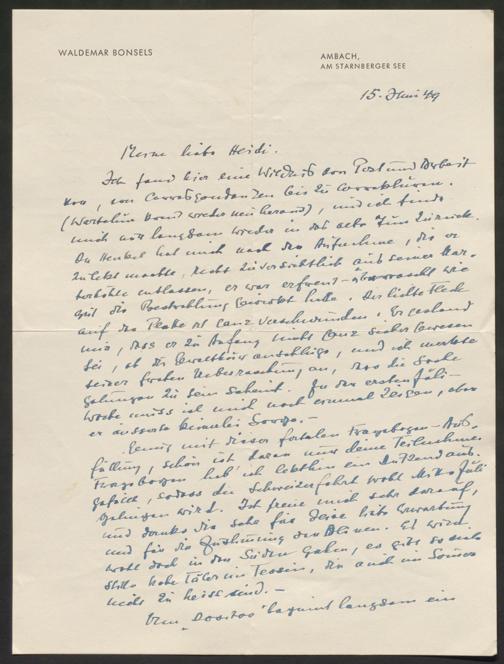 WALDEMAR BONSELS
AMBACH,
AM STARNBERGER SEE
15. Juni 49
Meine liebe Heidi.
Ich fand hier eine Wildnis von Post und Arbeit
vor, von Correspondenzen bis zu Correkturen.
(Wartalun kommt wieder neu heraus), und ich finde
mich nur langsam wieder in das alte zurück.
Dr Henkel hat mich nach der Aufnahme, die er
zuletzt machte, recht zuversichtlich aus seiner
entlassen, er war erfreut - überrascht wie
gut die Bestrahlung gewirkt habe. Der lichte Fleck
auf der Platte ist ganz verschwunden. Er gestand
mir, dass er zu Anfang nicht ganz sicher gewesen
sei, ob die anschlüge, und ich merkte
seiner frohen Ueberraschung an, dass die Sache
gelungen zu sein scheint. In der ersten Juli-
woche muss ich mich noch einmal zeigen, aber
er äusserte keinerlei Sorge. -
mit dieser fatalen Fragebogen-Aus-
füllung, schön ist daran nur deine Teilnahme
Fragebogen hab ich seitdem ein Dutzend aus-
gefüllt, sodass die Schweizerfahrt wohl Mitte Juli
gelingen wird. Ich freue mich sehr darauf,
und danke dir sehr für deine liebe Erwartung
und für die Zustimmung der Deinen. Es wird
wohl doch in den Süden gehen, es gibt so viele
stille hohe Täler im Tessin, die auch im Sommer
nicht zu heiss sind. -
Vom "Dositos" beginnt langsam ein